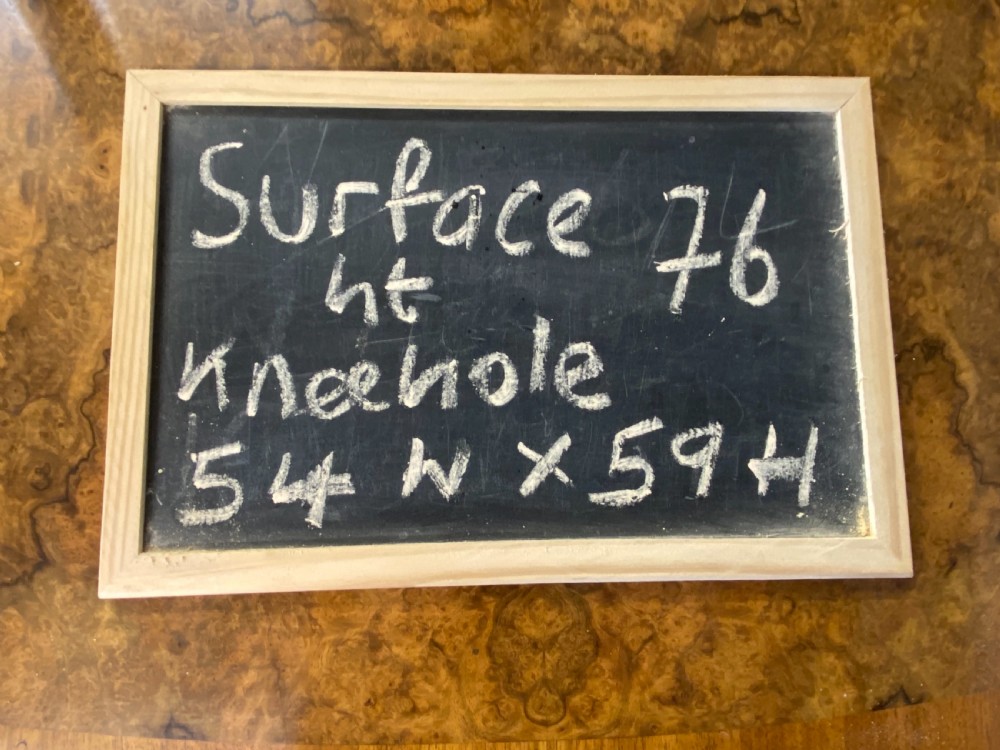 Surface 76
ht
Kneehole
54 W X 59 H